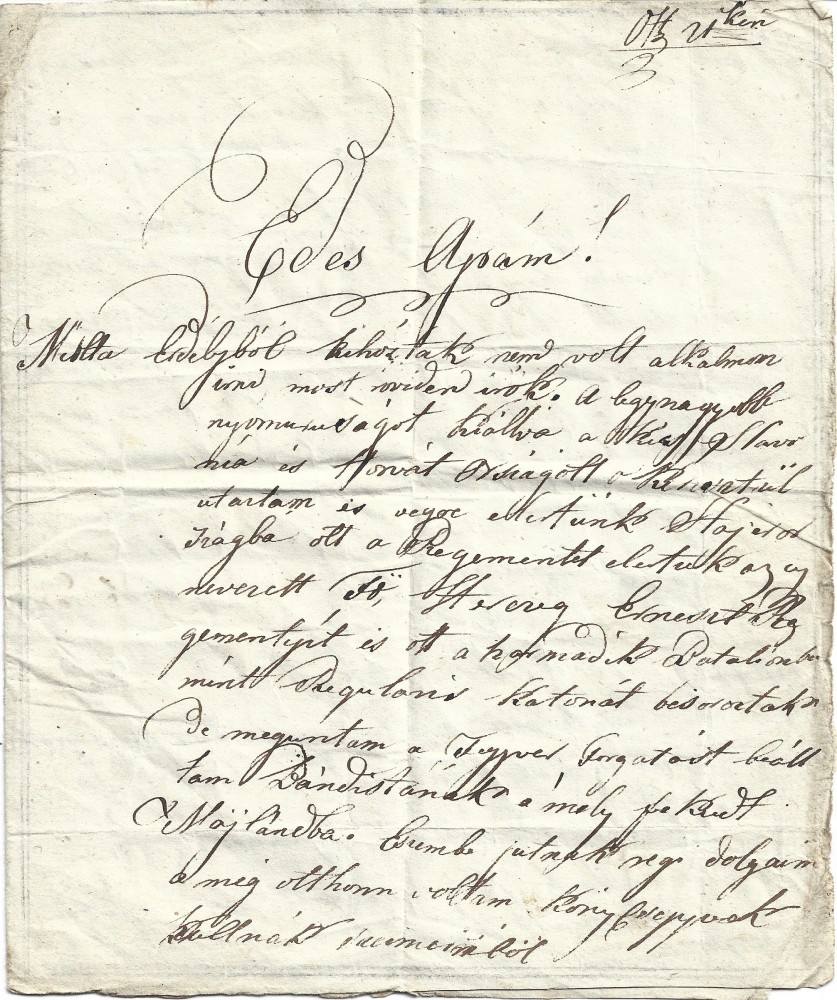 21ken
Edes Apám!
Miolta Erdélyböl kihoztak nem volt alkalmom
irni most röviden irok. A legnagyobb
nyomuruságot kiálva a Slavo
nia és Horvát Országott
utaztam és vegre elertünk Stajeror
szágba ott a Regementet elertük az ug
nevezett Fö, Herczeg Erneszt Reg
gementyét is ott a harmadik Batalionba
mint Regularis katonát besoroztak
de meguntam a Fegyver Forgatást beáll
tam Bándistának a mely fekudt
Májlándba. Eszembe jutnak regi dolgaim
a mig otthonn voltam köny Cseppek
hullnák szemeimböl